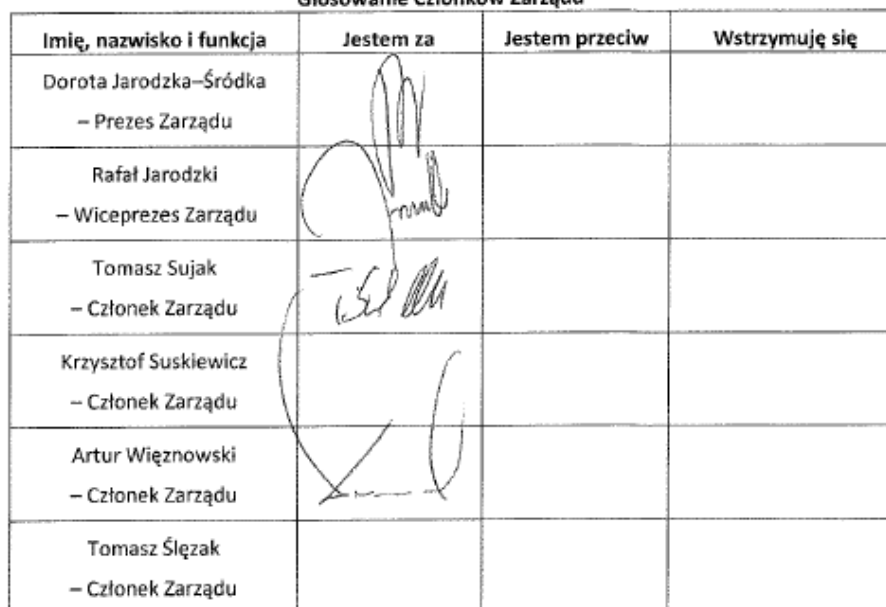 Głosowanie Członków Zarządu
Imię, nazwisko i funkcja Jestem za Jestem przeciw Wstrzymuję się
Dorota Jarodzka–Śródka
– Prezes Zarządu
Rafał Jarodzki
– Wiceprezes Zarządu
Tomasz Sujak
– Członek Zarządu
Krzysztof Suskiewicz
– Członek Zarządu
Artur Więznowski
– Członek Zarządu
Tomasz Ślęzak
– Członek Zarządu